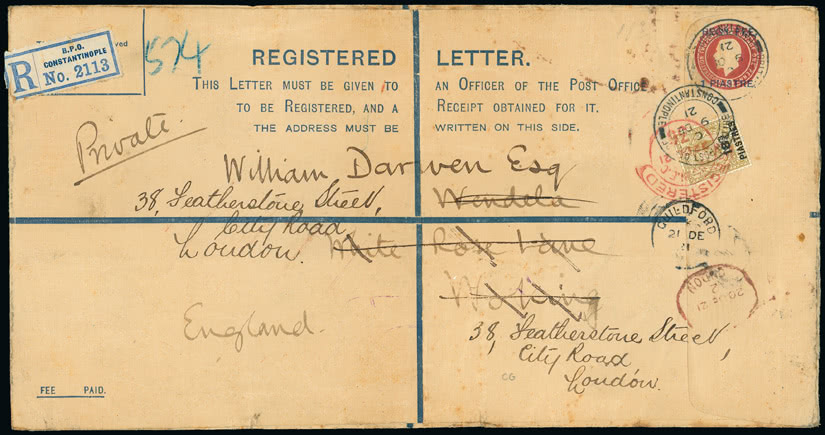 B.P.O.
CONSTANTINOPLE
R No. 2113
574
REGISTERED LETTER.
THIS LETTER MUST BE GIVEN TO AN OFFICER OF THE POST OFFICE
TO BE REGISTERED, AND A RECEIPT OBTAINED FOR IT.
THE ADDRESS MUST BE WRITTEN ON THIS SIDE.
1 PIASTRE.
CONSTANTINOPLE
PIASTRES
REGISTERED
Private
William Darwen Esq
38, Featherstone Street, Wendela
City Road
London. White Rose Lane
Woking
England.
38, Featherstone Street,
City Road
London.
GUILDFORD
21 DE
21
LONDON
20 DE 21
CG
FEE PAID.